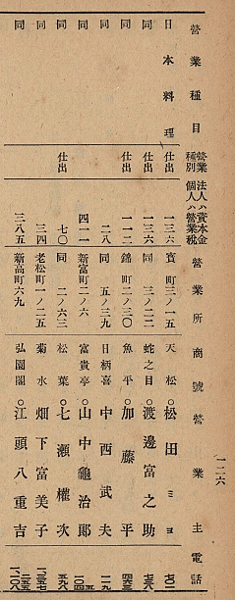 營業種目
營業種別
法人ハ資本金
個人ハ營業税
營業所
商號
營業主
電話
日本料理 仕出 一三六 寶町三ノ一五 天松 〇松田ミヨ
同 仕出 一三六 同三ノ二二 蛇之目 〇渡邊富之助
同 仕出 一一二 錦町二ノ三〇 魚平 〇加藤平
同 二八 同五ノ三九 日柄喜 中西武夫
同 四一一 新富町二ノ六 富貴亭 〇山中龜治郎
同 仕出 七〇 同二ノ六三 松葉 〇七瀬權次
同 三四 老松町一ノ二五 菊水 畑下富美子
同 三八五 新高町六九 弘園閣 〇江頭八重吉
一二六